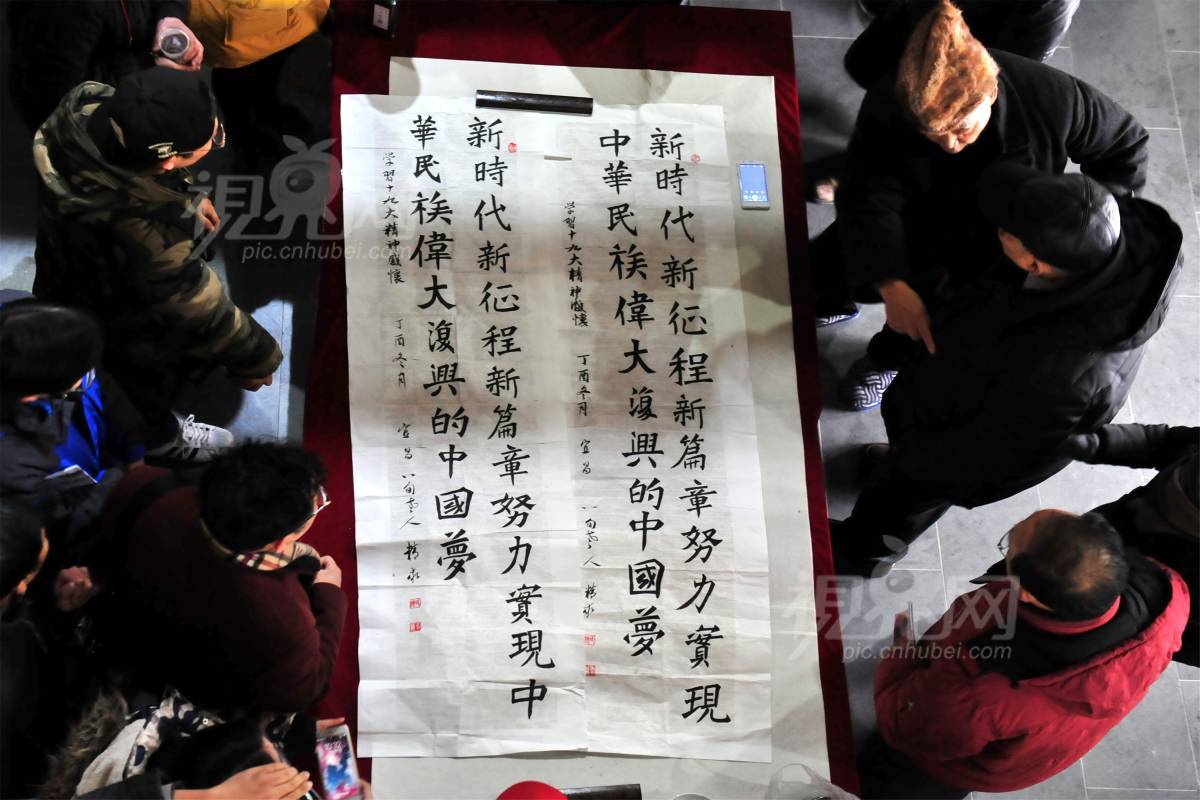 新時代新征程新篇章努力實現
中華民族偉大復興的中國夢
学習十九大精神感懷 丁酉冬月 宜昌 八旬老人
新時代新征程新篇章努力實現中
華民族偉大復興的中國夢
学習十九大精神感懷 丁酉冬月 宜昌 八旬老人
视界网
pic.cnhubei.com
视界网
pic.cnhubei.com